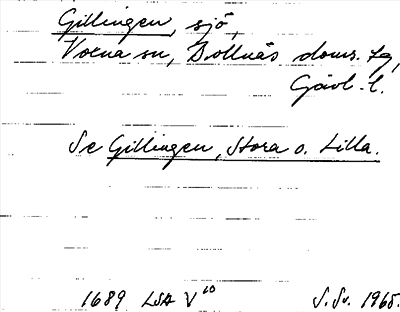 Gillingen, sjö,
Voxna sn, Bollnäs doms. tg,
Gävl. l.
Se Gillingen, Stora o. Lilla.
1689 LSA V¹⁰ S. Sv. 1965.